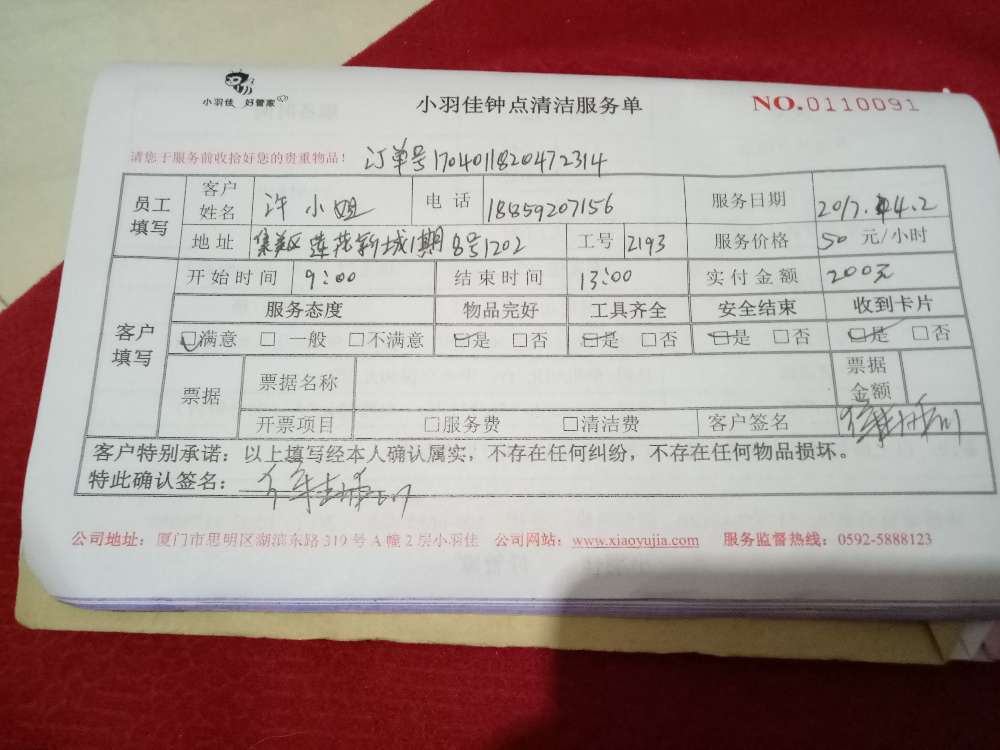 小羽佳 好管家
小羽佳钟点清洁服务单
NO.0110091
请您于服务前收拾好您的贵重物品! 订单号1704011820472314
员工填写 客户姓名 许小姐 电话 18859207156 服务日期 2017.4.2
地址 集美区莲花新城1期8号1202 工号 2193 服务价格 50 元/小时
客户填写 开始时间 9:00 结束时间 13:00 实付金额 200元
服务态度 物品完好 工具齐全 安全结束 收到卡片
☑满意 □ 一般 □不满意 ☑是 □否 ☑是 □否 ☑是 □否 ☑是 □否
票据 票据名称 票据金额
开票项目 □服务费 □清洁费 客户签名
客户特别承诺:以上填写经本人确认属实,不存在任何纠纷,不存在任何物品损坏。
特此确认签名:
公司地址:厦门市思明区湖滨东路319号A幢2层小羽佳 公司网站:www.xiaoyujia.com 服务监督热线:0592-5888123